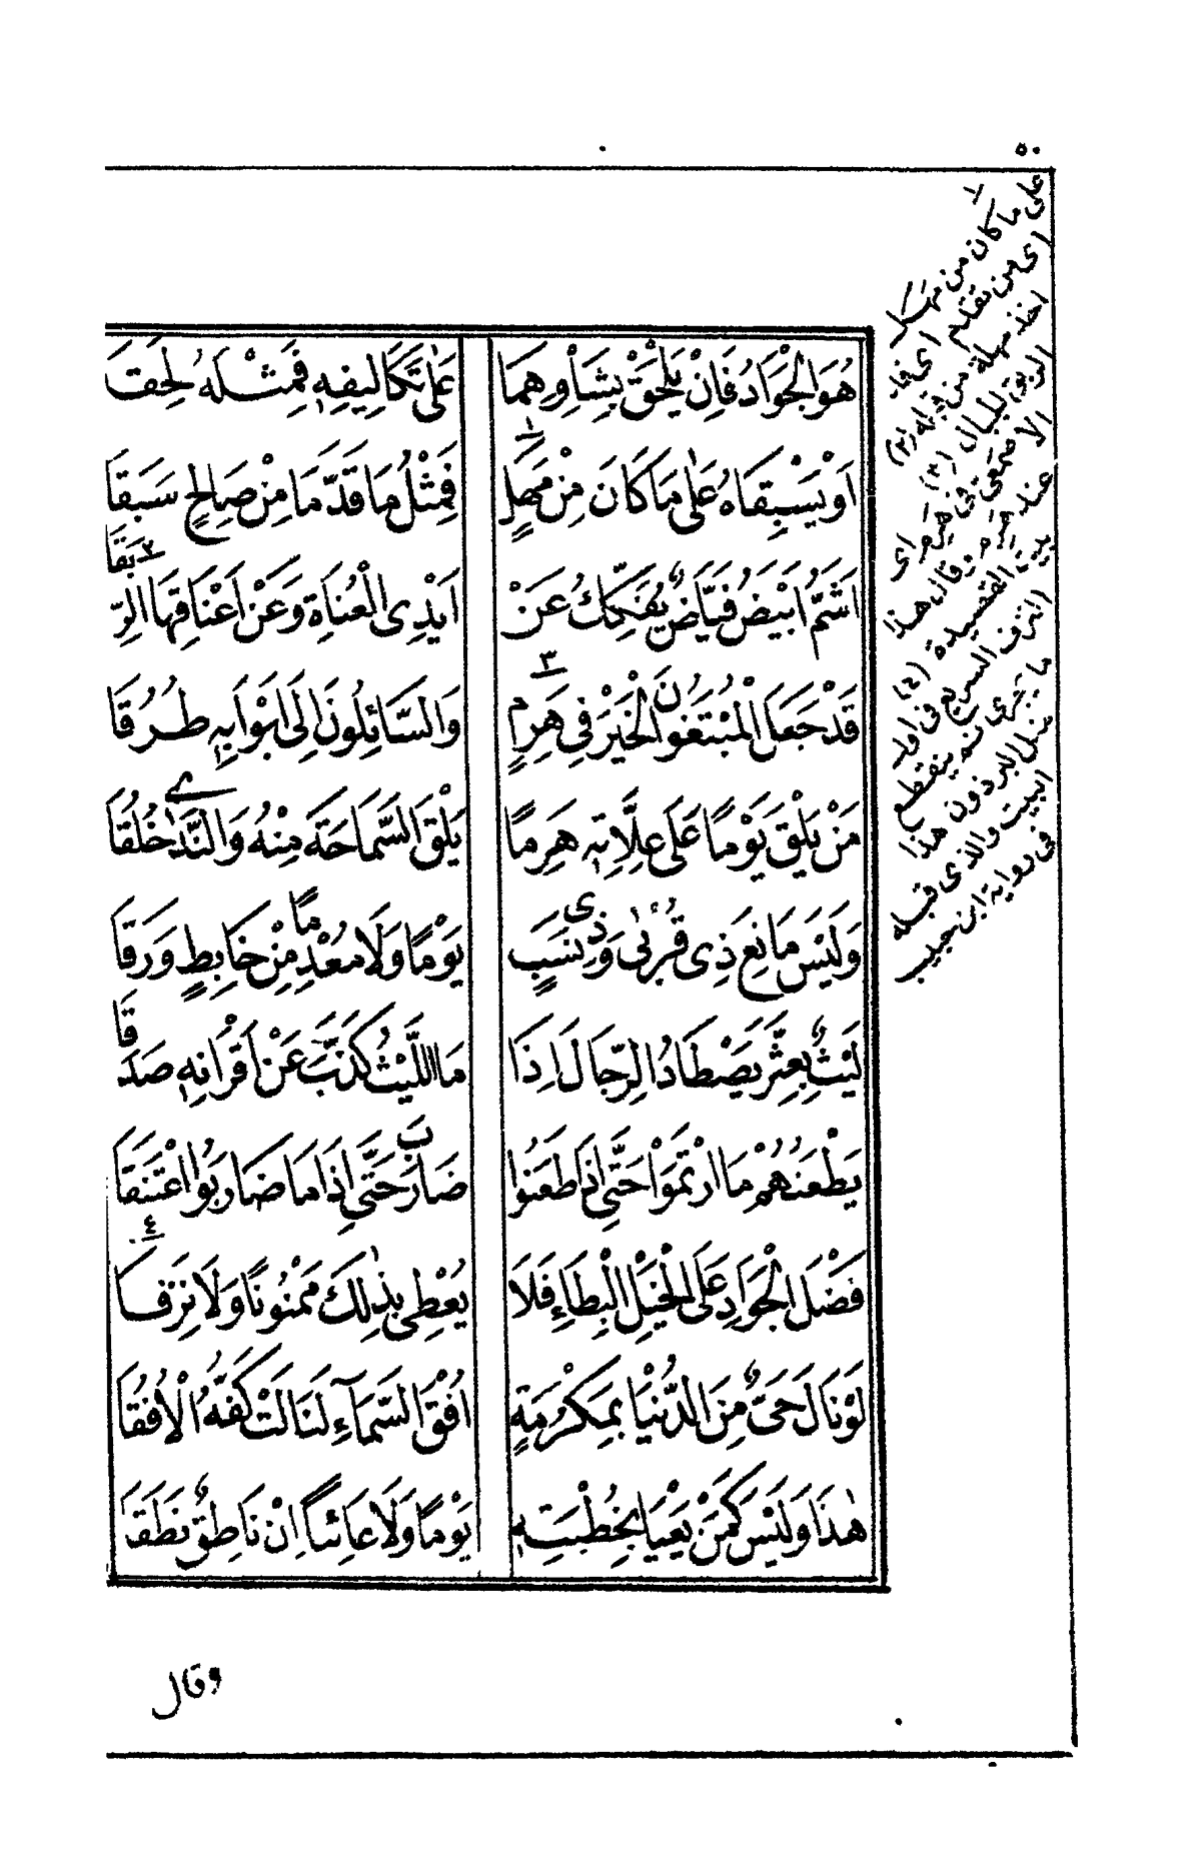 ٥٠
هُوَ الْجَوَادُ فَاِنْ يَلْحَقْ بِشَأْوِهِمَا عَلٰى تَكَالِيفِهِ فَمِثْلُهُ لَحِقَا
اَوْ يَسْبِقَاهُ عَلٰى مَا كَانَ مِنْ مَهَلٍ ١ فَمِثْلُ مَا قَدَّمَا مِنْ صَالِحٍ سَبَقَا
اَشَمُّ اَبْيَضُ فَيَّاضٌ يُفَكِّكُ عَنْ اَيْدِى الْعُنَاةِ وَعَنْ اَعْنَاقِهَا الرِّبَقَا ٢
قَدْ جَعَلَ الْمُبْتَغُونَ الْخَيْرَ فِى هَرِمٍ ٣ وَالسَّائِلُونَ اِلَى اَبْوَابِهِ طُرُقَا
مَنْ يَلْقَ يَوْمًا عَلَى عِلَّاتِهِ هَرِمًا يَلْقَ السَّمَاحَةَ مِنْهُ وَالنَّدَى خُلُقَا
وَلَيْسَ مَانِعَ ذِى قُرْبٰى وَذِى نَسَبٍ يَوْمًا وَلَا مُعْدِمًا مِنْ خَابِطٍ وَرَقَا
لَيْثٌ بِعَثَّرَ يَصْطَادُ الرِّجَالَ اِذَا مَا اللَّيْثُ كَذَّبَ عَنْ اَقْرَانِهِ صَدَقَا
يَطْعَنُهُمْ مَا ارْتَمَوْا حَتَّى اِذَا طَعَنُوا ضَارَبَ حَتَّى اِذَا مَا ضَارَبُوا اعْتَنَقَا
فَضْلَ الْجَوَادِ عَلَى الْخَيْلِ الْبِطَاءِ فَلَا يُعْطِى بِذٰلِكَ مَمْنُونًا وَلَا نَزِقَا ٤
لَوْ نَالَ حَىٌّ مِنَ الدُّنْيَا بِمَكْرُمَةٍ اُفْقَ السَّمَآءِ لَنَالَتْ كَفُّهُ الْاُفُقَا
هٰذَا وَلَيْسَ كَمَنْ يَعْيَا بِخُطْبَتِهِ يَوْمًا وَلَا عَائِبًا اِنْ نَاطِقٌ نَطَقَا
١
على ما كان من مهل
اى من تقدم اى
اخذ مهلة من قبله (٢)
الربق
عند هرم قال هذا
القصيدة (٤)
النزف السريع فى اول
ما يجرى ثم ينقطع
مثل البرذون هذا
البيت والذى قبله
فى رواية ابن حبيب
وقال